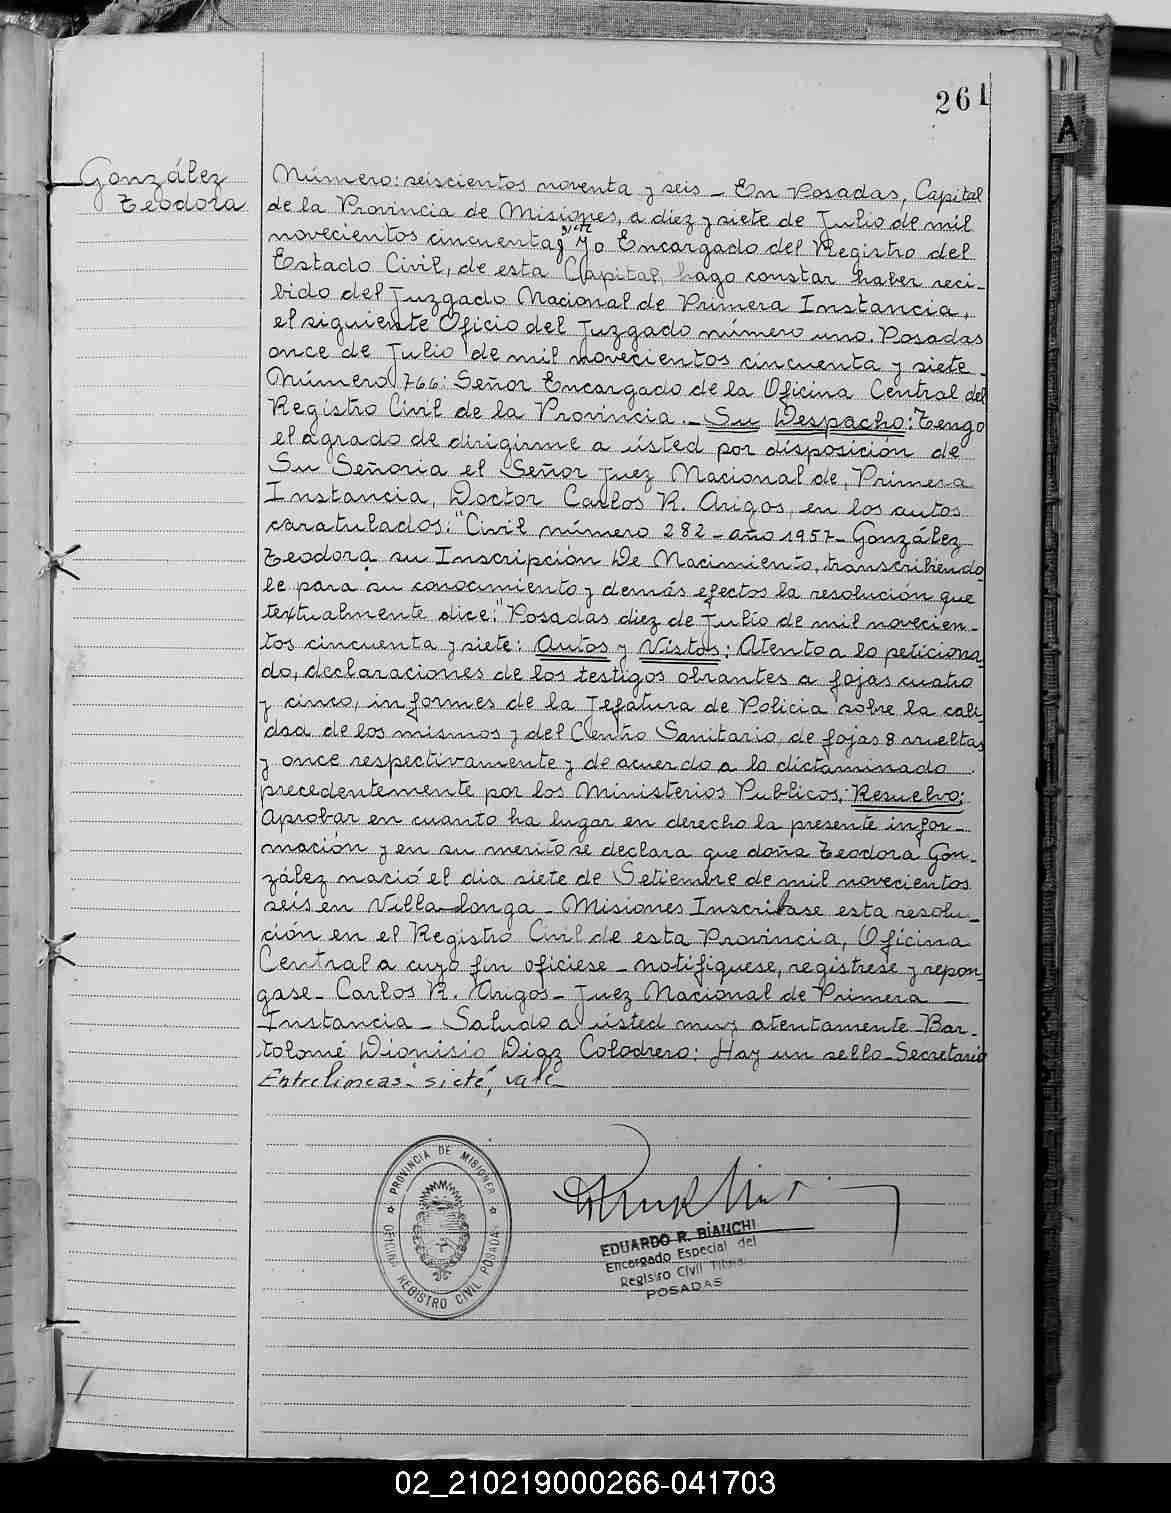 261
A
González
Teodora
Número: seiscientos noventa y seis - En Posadas, Capital
de la Provincia de Misiones, a diez y siete de Julio de mil
siete
novecientos cincuenta y Yo Encargado del Registro del
Estado Civil, de esta Capital, hago constar haber reci-
bido del Juzgado Nacional de Primera Instancia,
el siguiente Oficio del Juzgado número uno. Posadas
once de Julio de mil novecientos cincuenta y siete -
Número 766: Señor Encargado de la Oficina Central del
Registro Civil de la Provincia. - Su Despacho: Tengo
el agrado de dirigirme a usted por disposición de
Su Señoria el Señor Juez Nacional de, Primera
Instancia, Doctor Carlos R. Arigos, en los autos
caratulados: "Civil número 282 - año 1957 - González
Teodora su Inscripción De Nacimiento, transcribiendo-
le para su conocimiento y demás efectos la resolución que
textualmente dice: "Posadas diez de Julio de mil novecien-
tos cincuenta y siete: Autos y Vistos: Atento a lo peticiona-
do, declaraciones de los testigos obrantes a fojas cuatro
y cinco, informes de la Jefatura de Policia sobre la cali-
dad de los mismos y del Centro Sanitario, de fojas 8 vueltas
y once respectivamente y de acuerdo a lo dictaminado
precedentemente por los Ministerios Publicos, Resuelvo:
Aprobar en cuanto ha lugar en derecho la presente infor-
mación y en su merito se declara que doña Teodora Gon-
zález nació el dia siete de Setiembre de mil novecientos
seis en Villa Longa - Misiones Inscribase esta resolu-
ción en el Registro Civil de esta Provincia, Oficina
Central a cuyo fin oficiese - notifiquese, registrese y repon-
gase - Carlos R. Arigos - Juez Nacional de Primera -
Instancia - Saludo a usted muy atentamente Bar-
tolomé Dionisio Diaz Colodrero: Hay un sello - Secretario
Entrelineas - siete, vale -
PROVINCIA DE MISIONES
OFICINA REGISTRO CIVIL POSADAS
EDUARDO R. BIANCHI
Encargado Especial del
Registro Civil
POSADAS
02_210219000266-041703